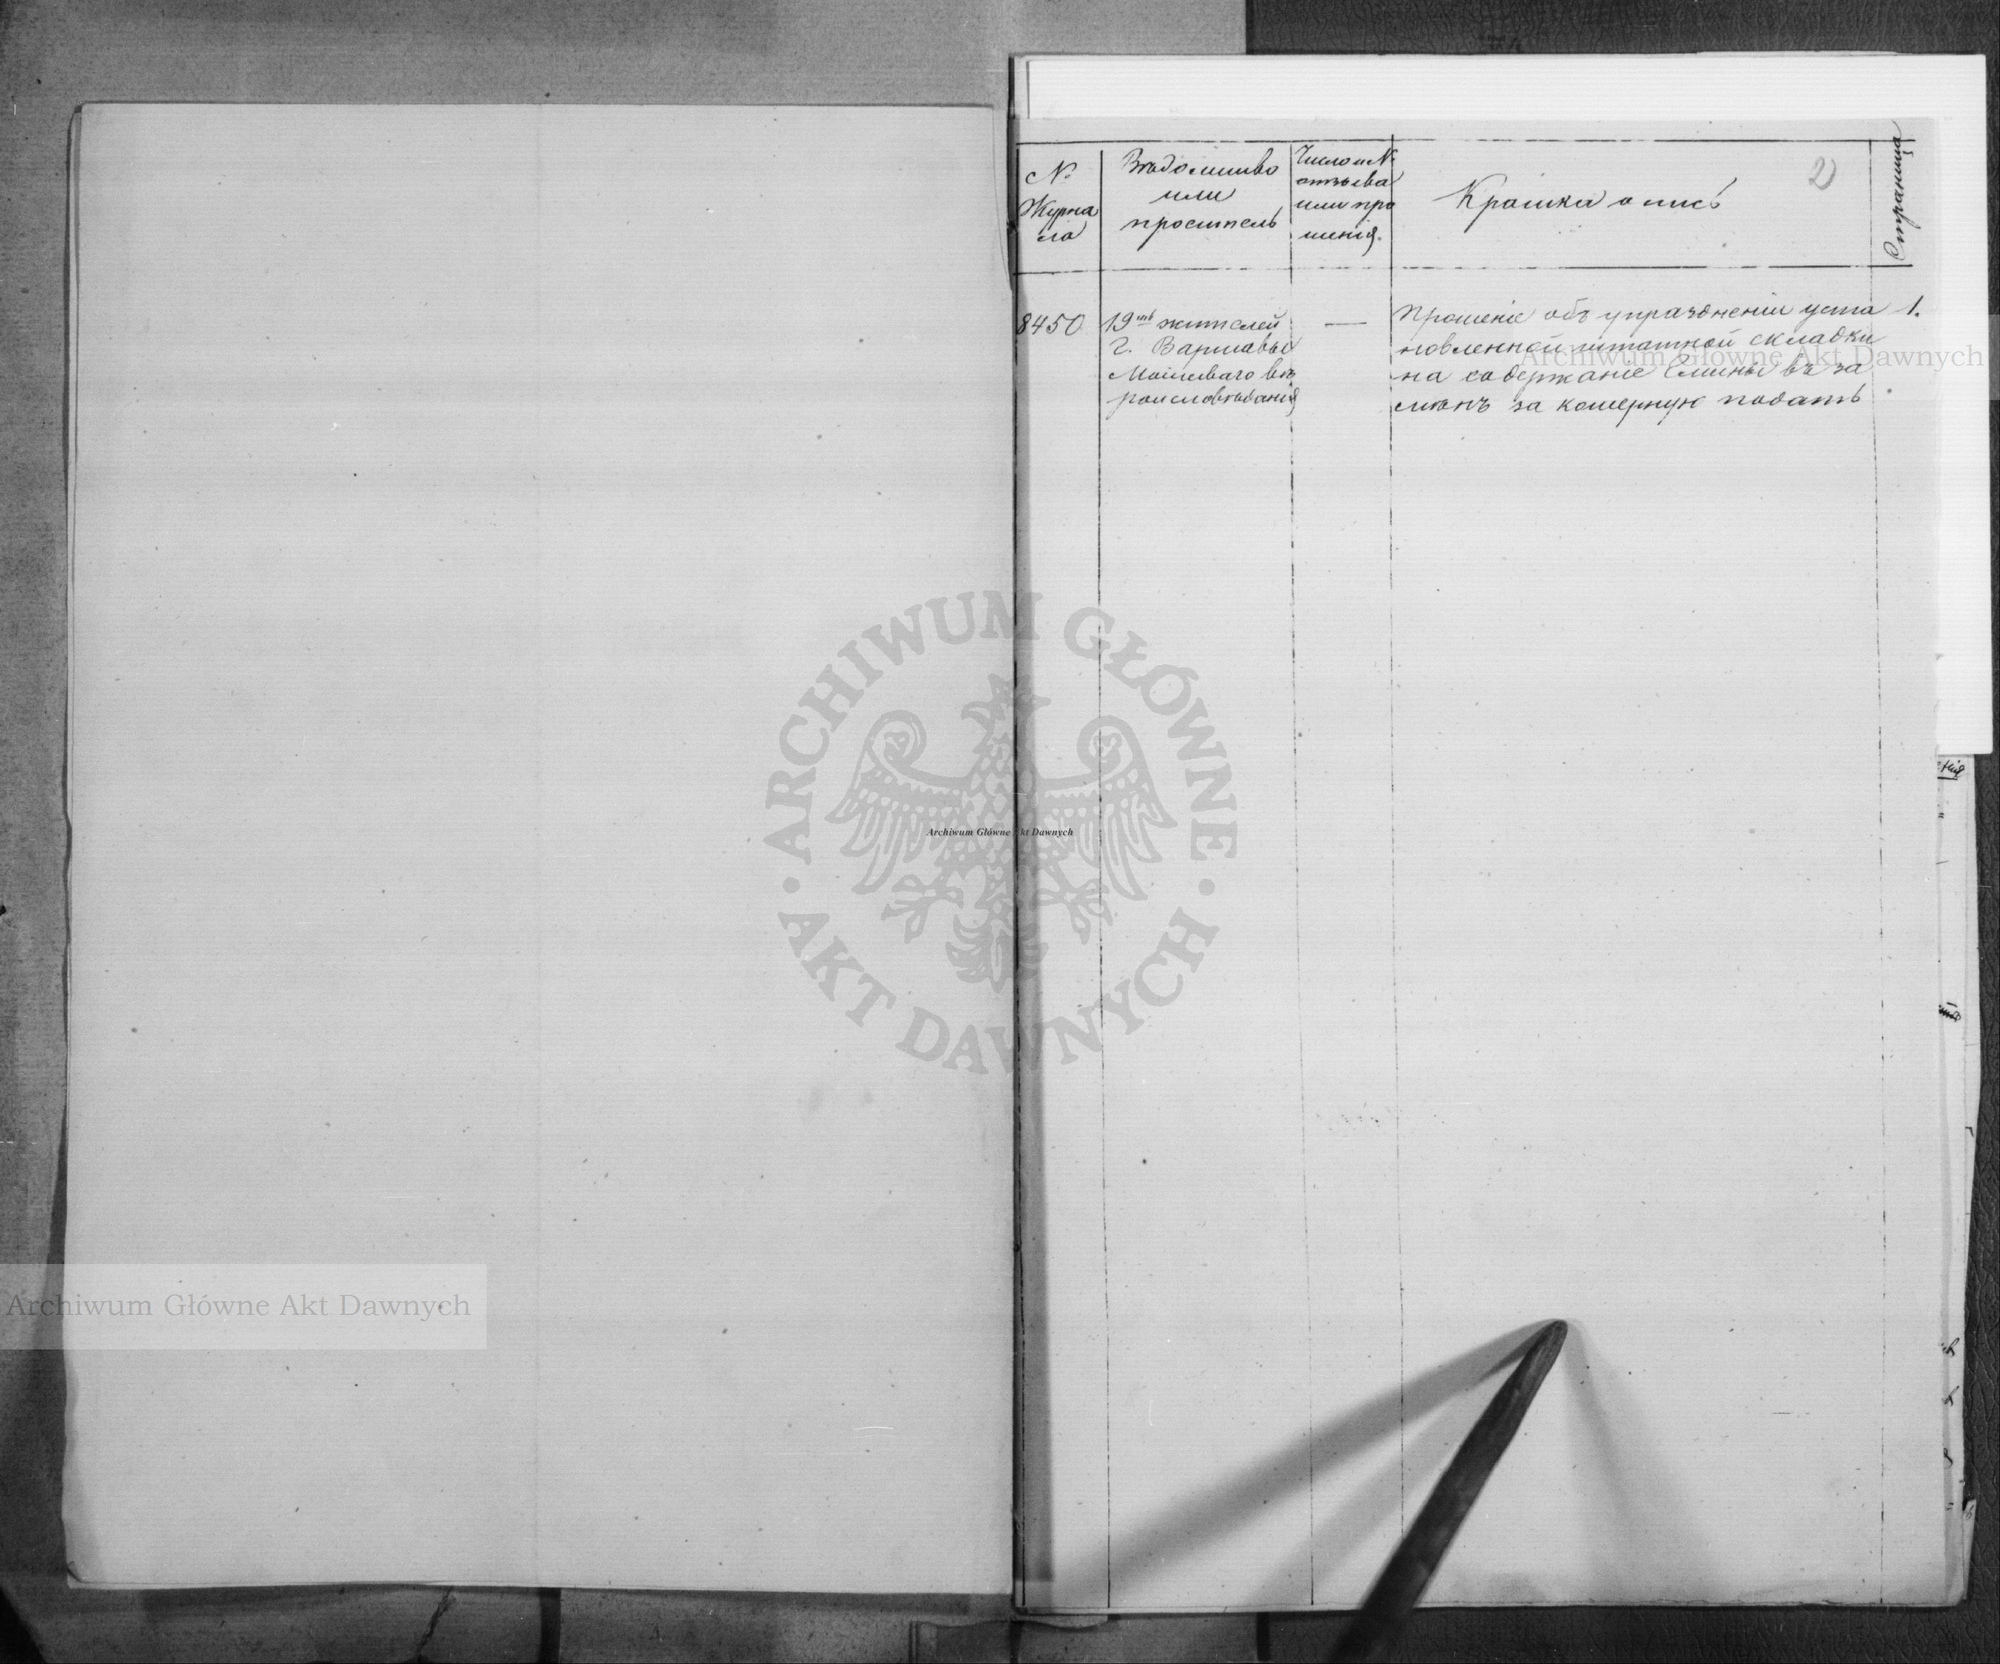 2)
№
Журна
ла
Вѣдомство
или
проситель
Число и №
отзыва
или про
шенія.
Краткая опись
Страница
8450
19ть жителей
г. Варшавы
Моисеева го вѣ
роисповѣданія
—
Прошеніе объ упраздненіи уста
новленной штатной складки
на содержаніе Гмины въ за
мѣнъ за кошерную подать
1.
Archiwum Główne Akt Dawnych
ARCHIWUM GŁÓWNE
AKT DAWNYCH
Archiwum Główne Akt Dawnych
Archiwum Główne Akt Dawnych